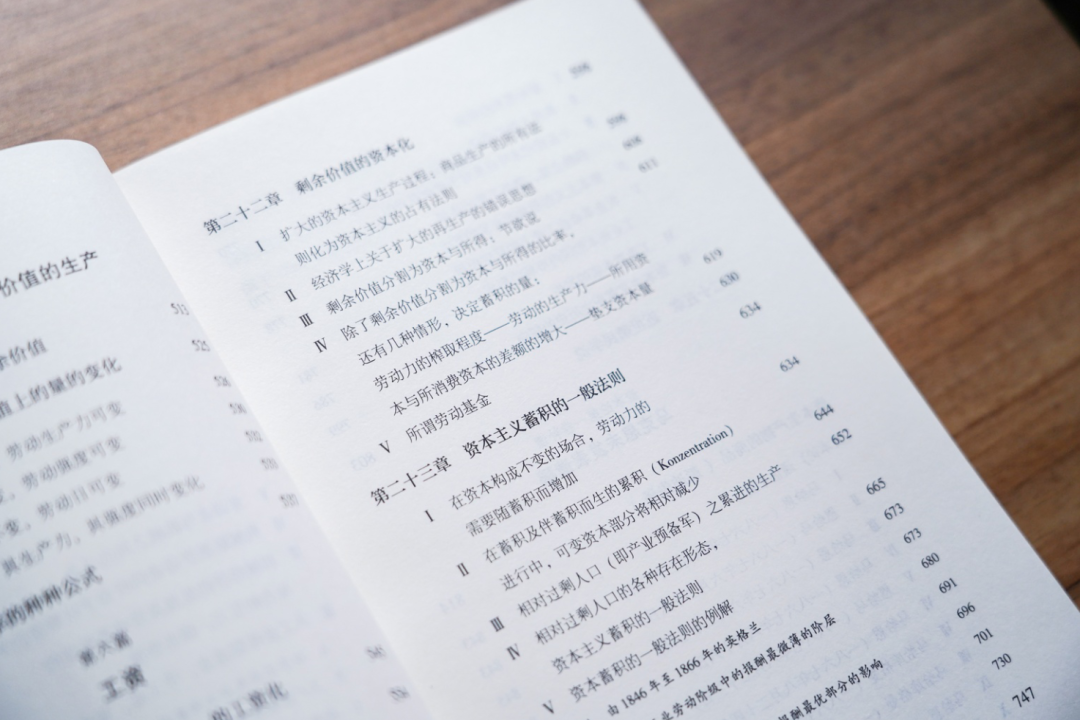 价值的生产
价值
值上的量的变化
劳动生产力可变
劳动强度可变
劳动日可变
其生产力、其强度同时变化
的种种公式
第六篇
工资
的工资化
第二十二章 剩余价值的资本化 598
I 扩大的资本主义生产过程；商品生产的所有法
则化为资本主义的占有法则 598
II 经济学上关于扩大的再生产的错误思想 608
III 剩余价值分割为资本与所得；节欲说 611
IV 除了剩余价值分割为资本与所得的比率，
还有几种情形，决定蓄积的量：
劳动力的榨取程度——劳动的生产力——所用资
本与所消费资本的差额的增大——垫支资本量 619
V 所谓劳动基金 630
第二十三章 资本主义蓄积的一般法则 634
I 在资本构成不变的场合，劳动力的
需要随蓄积而增加 634
II 在蓄积及伴蓄积而生的累积（Konzentration）
进行中，可变资本部分将相对减少 644
III 相对过剩人口（即产业预备军）之累进的生产 652
IV 相对过剩人口的各种存在形态，
资本主义蓄积的一般法则 665
V 资本蓄积的一般法则的例解 673
由1846年至1866年的英格兰 673
业劳动阶级中的报酬最微薄的阶层 680
691
报酬最优部分的影响 696
701
730
747